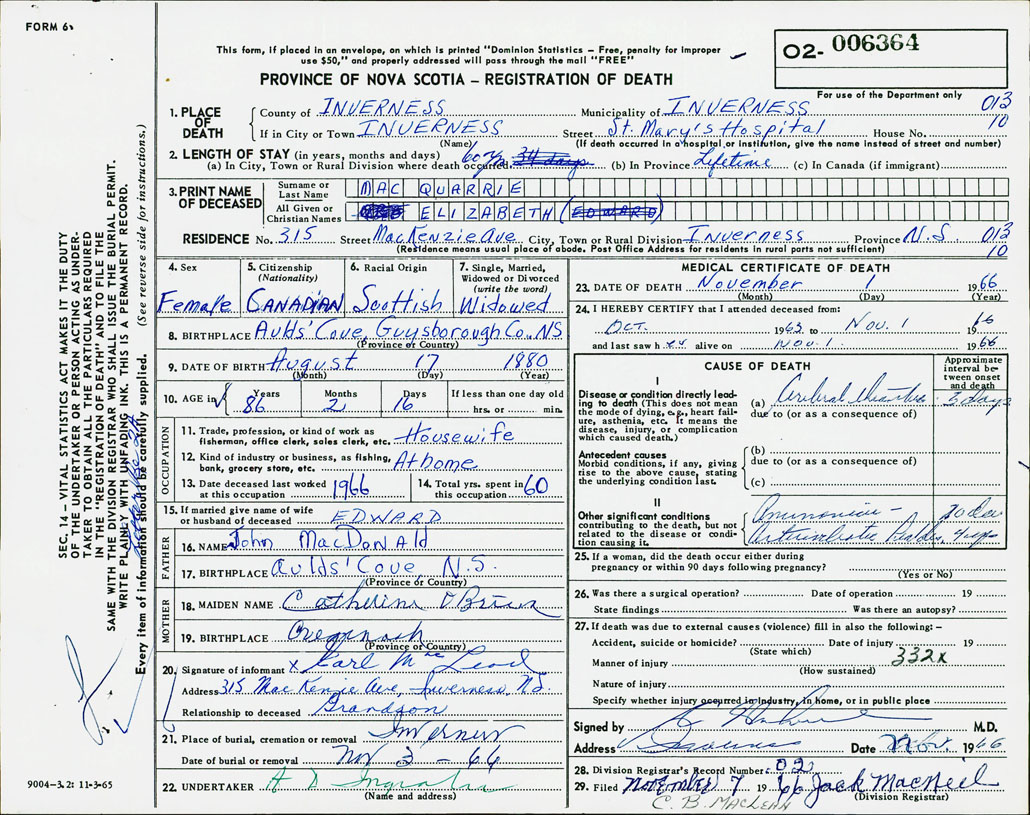 FORM 6
This form, if placed in an envelope, on which is printed "Dominion Statistics – Free, penalty for improper
use $50," and properly addressed will pass through the mail "FREE"
PROVINCE OF NOVA SCOTIA – REGISTRATION OF DEATH
O2- 006364
For use of the Department only
1. PLACE OF DEATH
County of INVERNESS Municipality of INVERNESS 013
If in City or Town INVERNESS Street St. Mary's Hospital House No. 10
(Name) (If death occurred in a hospital or institution, give the name instead of street and number)
2. LENGTH OF STAY (in years, months and days)
(a) In City, Town or Rural Division where death occurred 60 yrs 34 days (b) In Province Lifetime (c) In Canada (if immigrant)
3. PRINT NAME OF DECEASED
Surname or Last Name MAC QUARRIE
All Given or Christian Names ELIZABETH (EDWARD)
RESIDENCE No. 315 Street MacKenzie Ave City, Town or Rural Division Inverness Province N.S. 013
(Residence means usual place of abode. Post Office Address for residents in rural parts not sufficient) 10
4. Sex Female
5. Citizenship (Nationality) CANADIAN
6. Racial Origin Scottish
7. Single, Married, Widowed or Divorced (write the word) Widowed
8. BIRTHPLACE Aulds' Cove, Guysborough Co., NS
(Province or Country)
9. DATE OF BIRTH August 17 1880
(Month) (Day) (Year)
10. AGE in Years Months Days If less than one day old
86 2 16 hrs. or min.
OCCUPATION
11. Trade, profession, or kind of work as
fisherman, office clerk, sales clerk, etc. Housewife
12. Kind of industry or business, as fishing,
bank, grocery store, etc. At home
13. Date deceased last worked
at this occupation 1966
14. Total yrs. spent in
this occupation 60
15. If married give name of wife
or husband of deceased EDWARD
FATHER
16. NAME John MacDonald
17. BIRTHPLACE Aulds' Cove N.S.
(Province or Country)
MOTHER
18. MAIDEN NAME Catherine O'Brien
19. BIRTHPLACE
(Province or Country)
20. Signature of informant x Karl Mac Leod
Address 315 MacKenzie Ave, Inverness, N.S.
Relationship to deceased Grandson
21. Place of burial, cremation or removal Inverness
Date of burial or removal Nov 3 – 66
22. UNDERTAKER A D
(Name and address)
MEDICAL CERTIFICATE OF DEATH
23. DATE OF DEATH November 1 1966
(Month) (Day) (Year)
24. I HEREBY CERTIFY that I attended deceased from:
Oct. 1963 to Nov. 1 1966
and last saw her alive on Nov. 1 1966
CAUSE OF DEATH
Approximate interval between onset and death
I
Disease or condition directly leading to death (This does not mean
the mode of dying, e.g., heart failure, asthenia, etc. It means the
disease, injury, or complication
which caused death.)
(a) Cerebral 3 days
due to (or as a consequence of)
Antecedent causes
Morbid conditions, if any, giving
rise to the above cause, stating
the underlying condition last.
(b)
due to (or as a consequence of)
(c)
II
Other significant conditions
contributing to the death, but not
related to the disease or condition causing it.
25. If a woman, did the death occur either during
pregnancy or within 90 days following pregnancy?
(Yes or No)
26. Was there a surgical operation? Date of operation 19
State findings Was there an autopsy?
27. If death was due to external causes (violence) fill in also the following:–
Accident, suicide or homicide? Date of injury 19
(State which) 332x
Manner of injury
(How sustained)
Nature of injury
Specify whether injury occurred in industry, in home, or in public place
Signed by M.D.
Address Inverness Date Nov. 1966
28. Division Registrar's Record Number
29. Filed November 7 1966 Jack MacNeil
C. B. MACLEAN (Division Registrar)
SEC. 14 – VITAL STATISTICS ACT MAKES IT THE DUTY
OF THE UNDERTAKER OR PERSON ACTING AS UNDER-
TAKER TO OBTAIN ALL THE PARTICULARS REQUIRED
IN THE "REGISTRATION OF DEATH" AND TO FILE THE
SAME WITH THE DIVISION REGISTRAR WHO SHALL ISSUE THE BURIAL PERMIT.
WRITE PLAINLY WITH UNFADING INK. THIS IS A PERMANENT RECORD.
Every item of information should be carefully supplied. (See reverse side for instructions.)
9004-3.2: 11-3-65